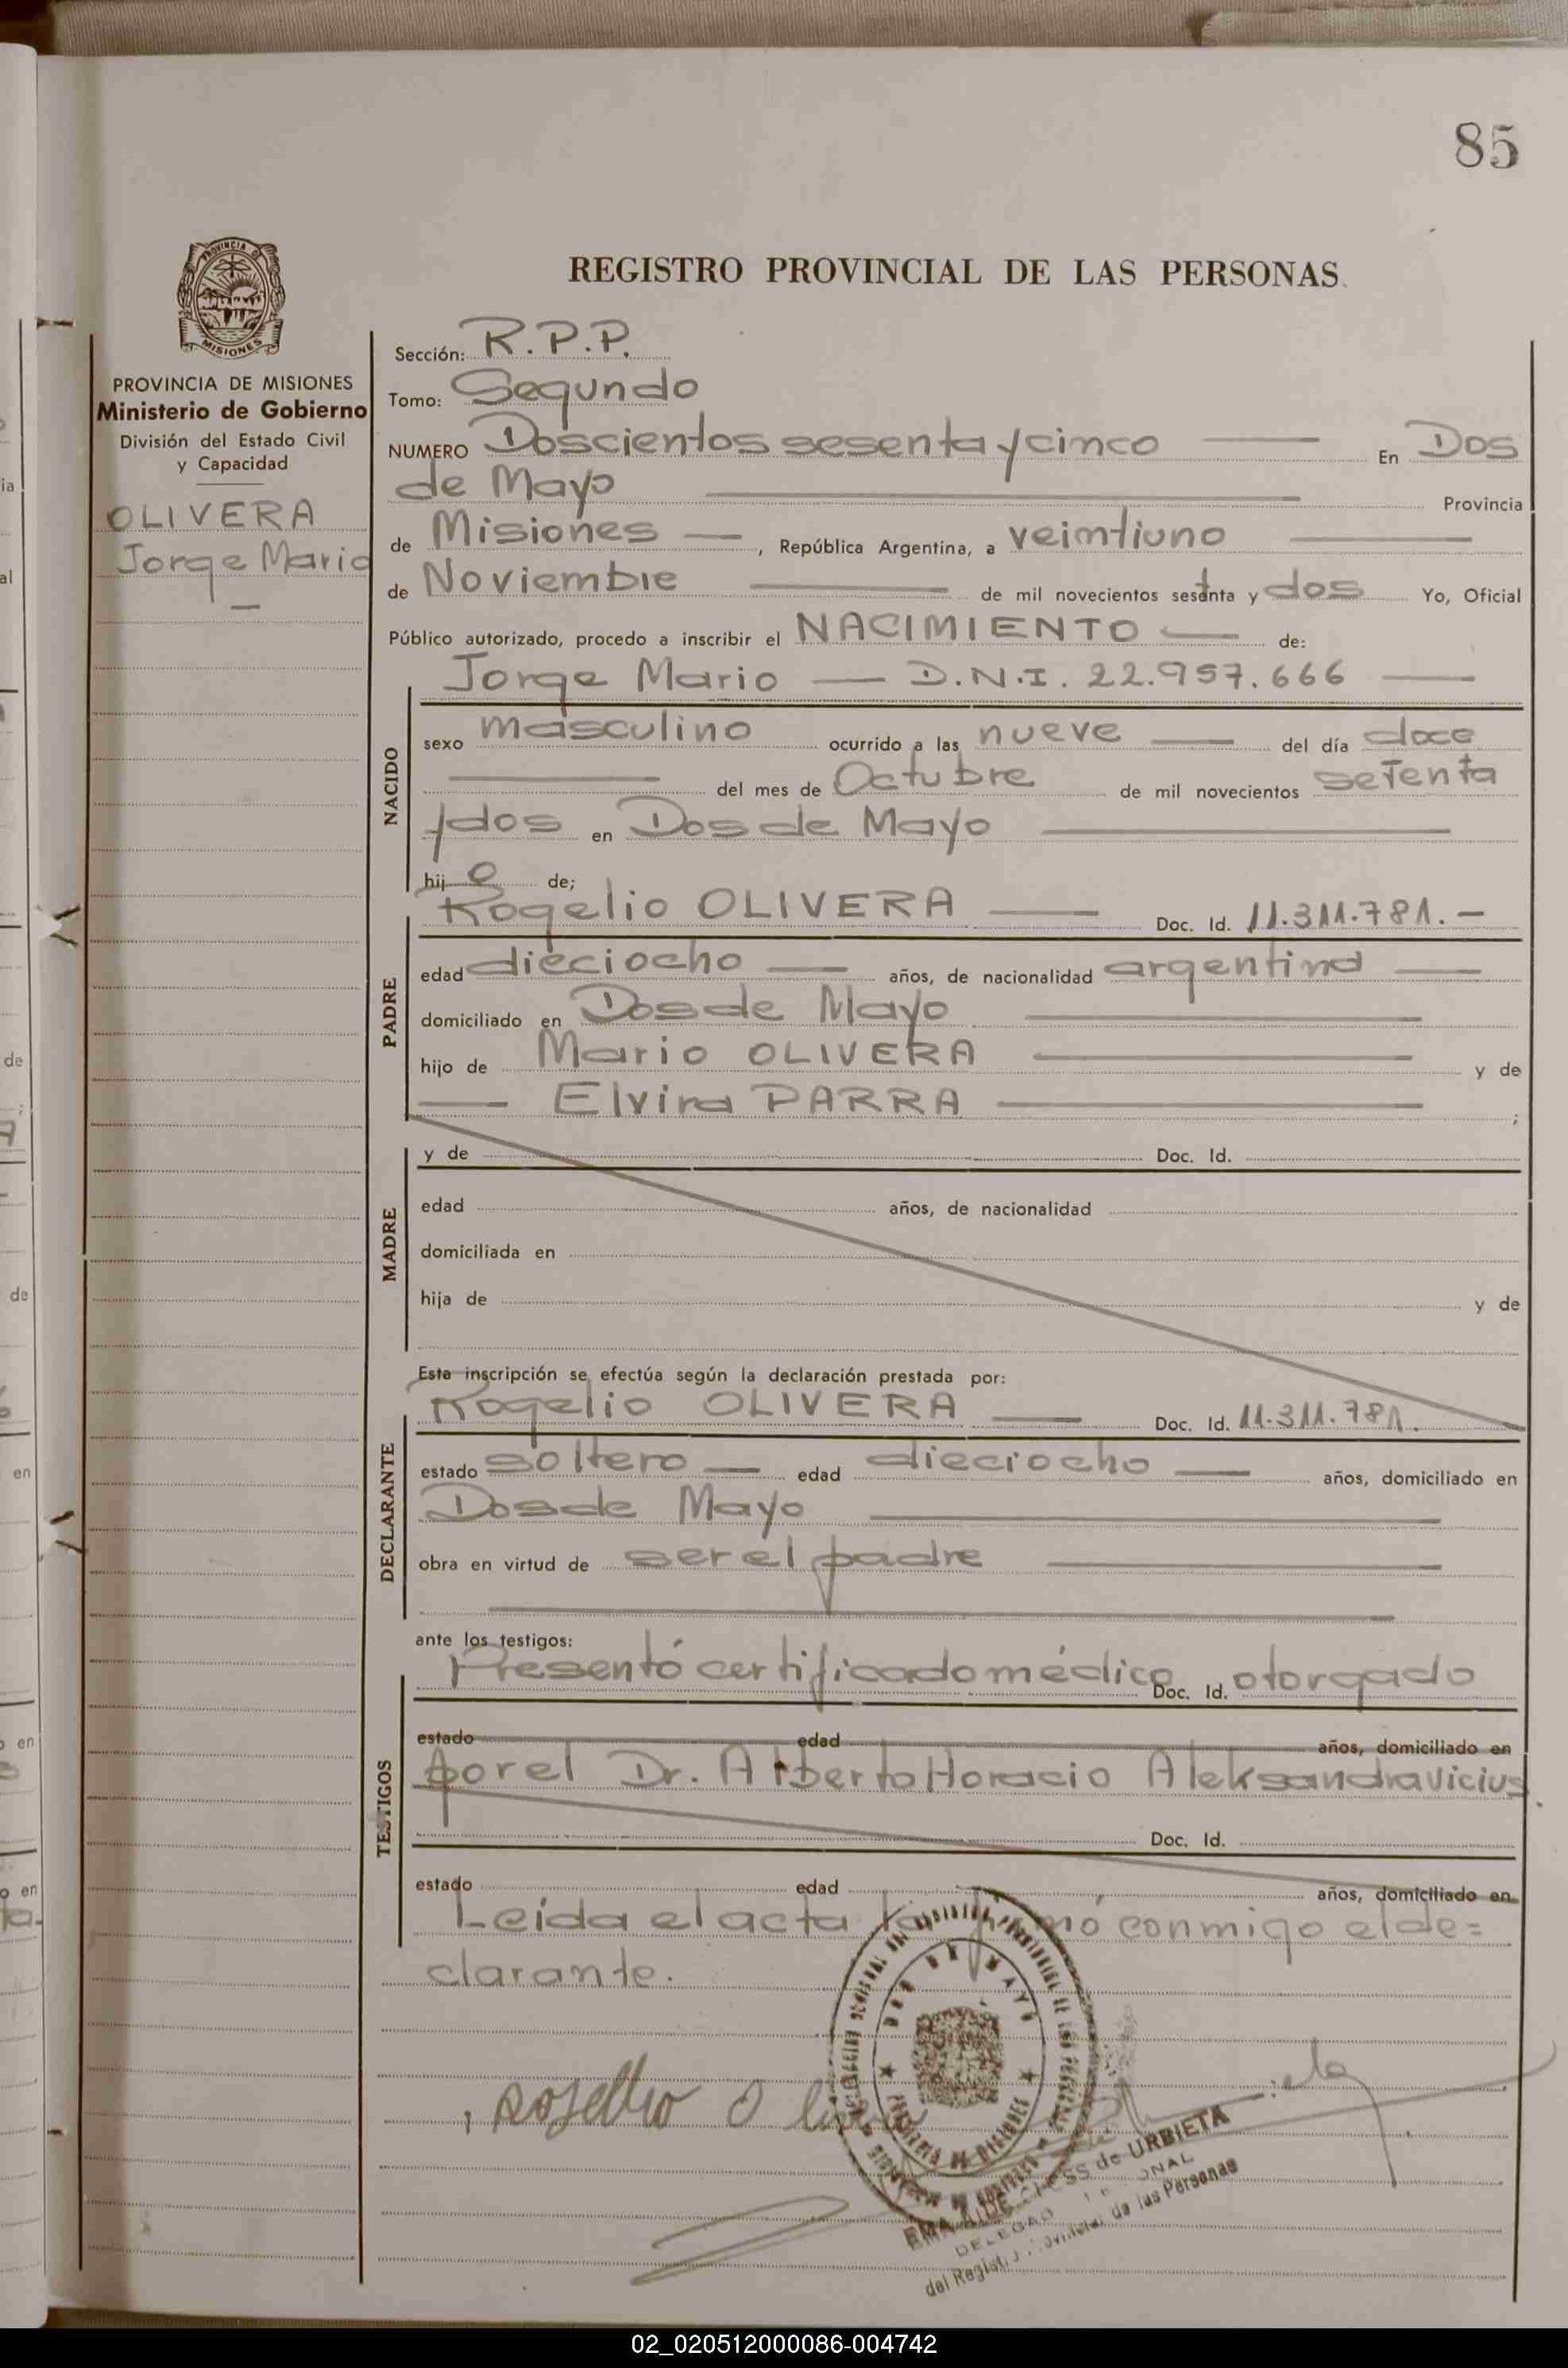 85
REGISTRO PROVINCIAL DE LAS PERSONAS
PROVINCIA DE MISIONES
Ministerio de Gobierno
División del Estado Civil
y Capacidad
OLIVERA
Jorge Mario
Sección: R.P.P.
Tomo: Segundo
NUMERO Doscientos sesenta y cinco En Dos
de Mayo Provincia
de Misiones, República Argentina, a veintiuno
de Noviembre de mil novecientos setenta y dos Yo, Oficial
Público autorizado, procedo a inscribir el NACIMIENTO de:
Jorge Mario — D.N.I. 22.957.666
NACIDO
sexo masculino ocurrido a las nueve del día doce
del mes de Octubre de mil novecientos setenta
y dos en Dos de Mayo
hijo de;
Rogelio OLIVERA Doc. Id. 11.311.781.-
PADRE
edad dieciocho años, de nacionalidad argentina
domiciliado en Dos de Mayo
hijo de Mario OLIVERA y de
Elvira PARRA ;
MADRE
y de Doc. Id.
edad años, de nacionalidad
domiciliada en
hija de y de
Esta inscripción se efectúa según la declaración prestada por:
Rogelio OLIVERA Doc. Id. 11.311.781.
DECLARANTE
estado soltero edad dieciocho años, domiciliado en
Dos de Mayo
obra en virtud de ser el padre
ante los testigos:
Presentó certificado médico Doc. Id. otorgado
TESTIGOS
estado edad años, domiciliado en
por el Dr. Alberto Horacio Aleksandravicius.
Doc. Id.
estado edad años, domiciliado en
Leída el acta la firmó conmigo el de=
clarante.
DOS DE MAYO
PROVINCIA DE MISIONES
de URBIETA
del Registro Provincial de las Personas
02_020512000086-004742